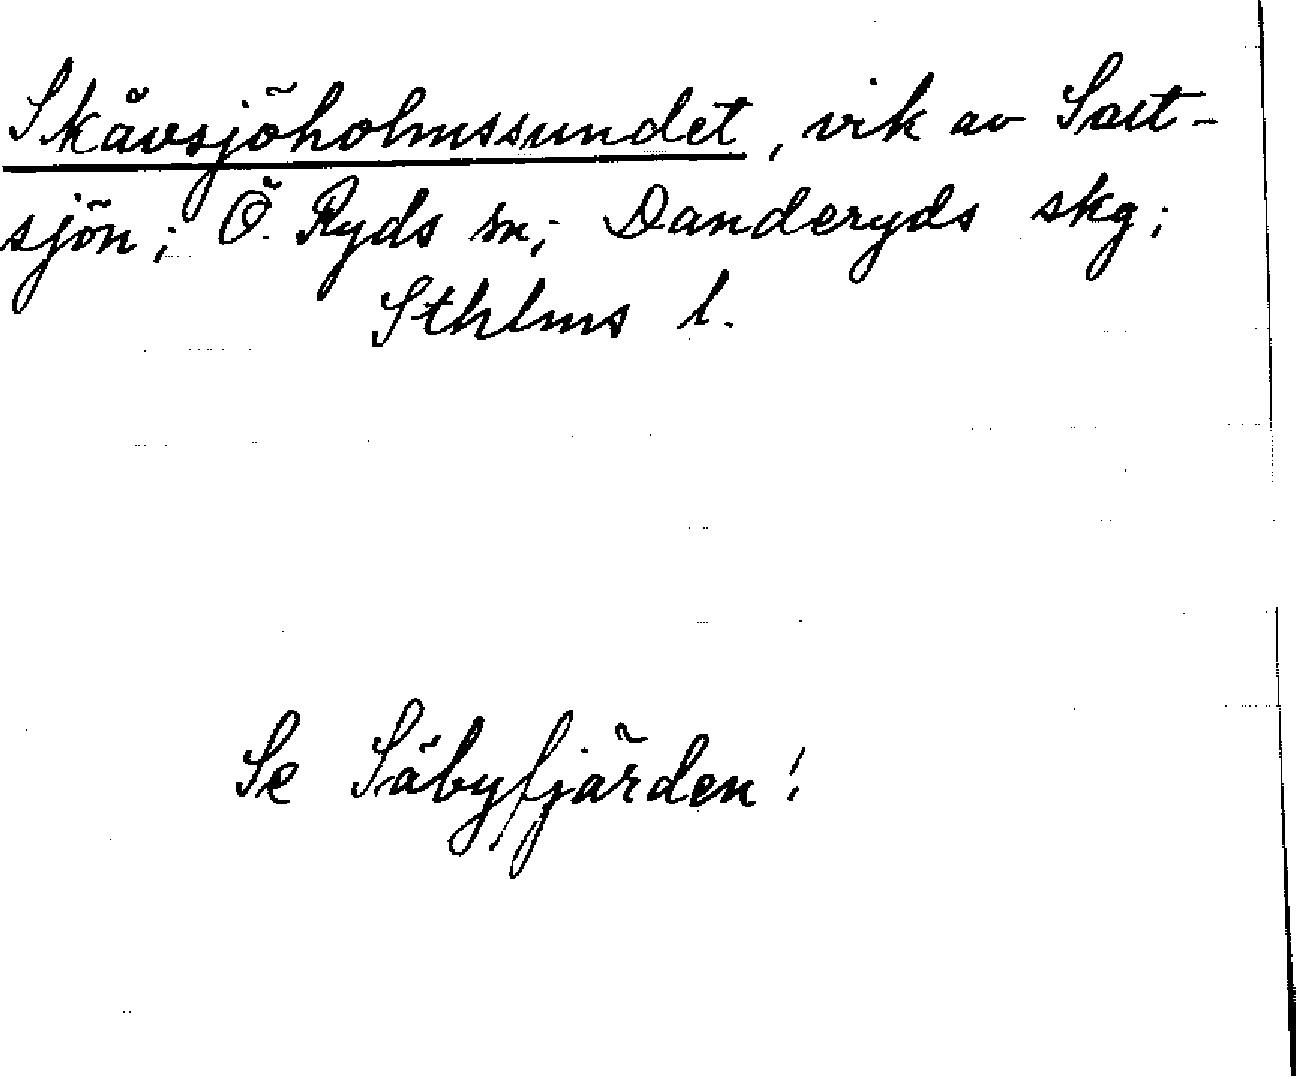 Skåvsjöholmssundet, vik av Salt-
sjön; Ö. Ryds sn; Danderyds skg;
Sthlms l.
Se Säbyfjärden!